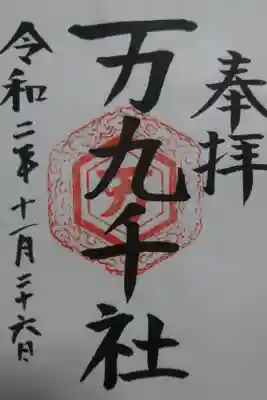 奉拝
万九千社
令和二年十一月二十六日